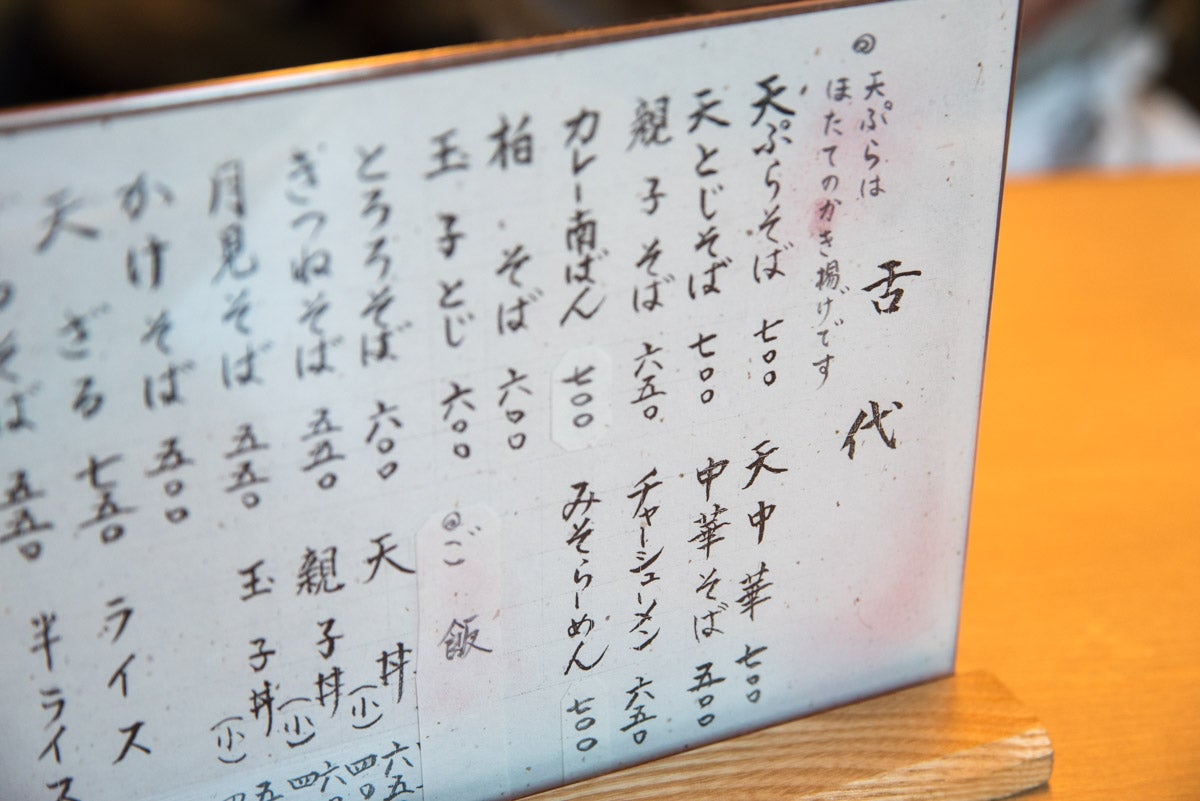 舌代
◎天ぷらは
ほたてのかき揚げです
天ぷらそば 七〇〇
天とじそば 七〇〇
親子そば 六五〇
カレー南ばん 七〇〇
柏そば 六〇〇
玉子とじ 六〇〇
とろろそば 六〇〇
きつねそば 五五〇
月見そば 五五〇
かけそば 五〇〇
天ざる 七五〇
そば 五五〇
天中華 七〇〇
中華そば 五〇〇
チャーシューメン 六五〇
みそらーめん 七〇〇
◎ご飯
天丼 六五
(小) 四〇
親子丼 六
(小) 四
玉子丼 五
(小) 四
ライス
半ライス